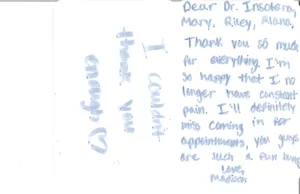 I couldn't
thank you
enough
Dear Dr. Insoft
Mary, Riley, Alana,
Thank you so much
for everything I'm
so happy that I no
longer have constant
pain. I'll definitely
miss coming in for
appointments, you guys
are such a fun
Love,
Madison